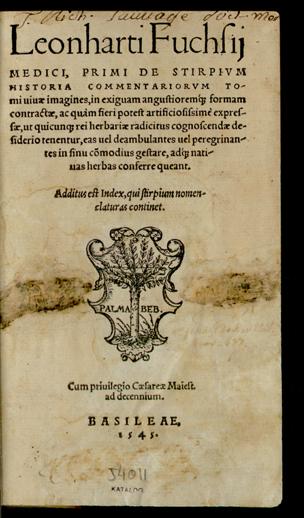 Mich. Sauvage doct. Med
Leonharti Fuchsij
MEDICI, PRIMI DE STIRPIVM
HISTORIA COMMENTARIORVM TO-
mi uiuæ imagines, in exiguam angustioremq́; formam
contractæ, ac quàm fieri potest artificiosissimè expres-
sæ, ut quicunq; rei herbariæ radicitus cognoscendæ de-
siderio tenentur, eas uel deambulantes uel peregrinan-
tes in sinu cōmodius gestare, adq́; nati-
uas herbas conferre queant.
Additus est Index, qui stirpium nomen-
claturas continet.
PALMA BEB.
Cum priuilegio Cæsareæ Maiest.
ad decennium.
BASILEAE,
1545.
54011
KATALOG